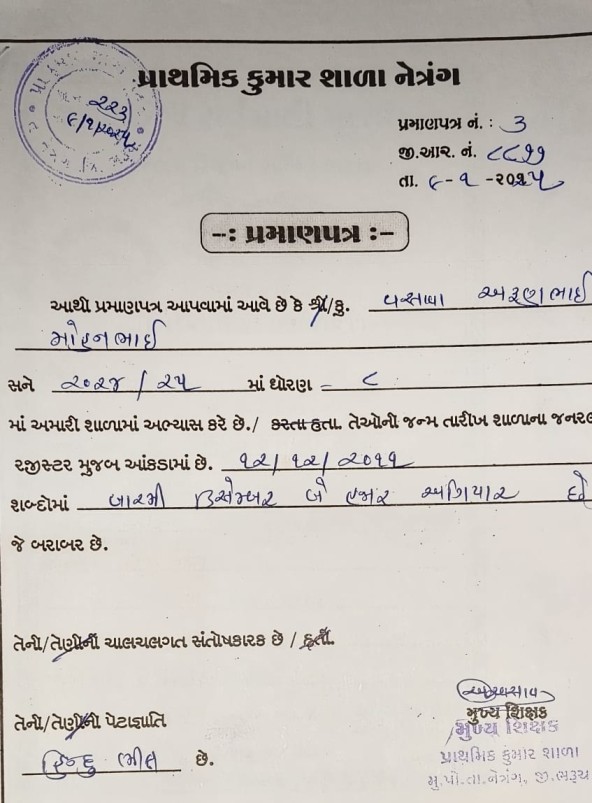 પ્રાથમિક કુમાર શાળા નેત્રંગ
૨૨૩
૯/૧/૨૦૨૫
પ્રમાણપત્ર નં. : ૩
જી.આર. નં. ૮૮૧૧
તા. ૯-૧-૨૦૨૫
-: પ્રમાણપત્ર :-
આથી પ્રમાણપત્ર આપવામાં આવે છે કે શ્રી/કુ. વસાવા અરૂણભાઈ
મોહનભાઈ
સને ૨૦૨૪/૨૫ માં ધોરણ - ૮
માં અમારી શાળામાં અભ્યાસ કરે છે./ કરતા હતા. તેઓની જન્મ તારીખ શાળાના જનરલ
રજીસ્ટર મુજબ આંકડામાં છે. ૧૨/૧૨/૨૦૧૧
શબ્દોમાં બારમી ડિસેમ્બર બે હજાર અગિયાર
જે બરાબર છે.
તેની/તેણીની ચાલચલગત સંતોષકારક છે / હતી.
તેની/તેણીની પેટાજ્ઞાતિ
હિન્દુ ભીલ છે.
મુખ્ય શિક્ષક
મુખ્ય શિક્ષક
પ્રાથમિક કુમાર શાળા
મુ.પો.તા.નેત્રંગ, જી.ભરૂચ